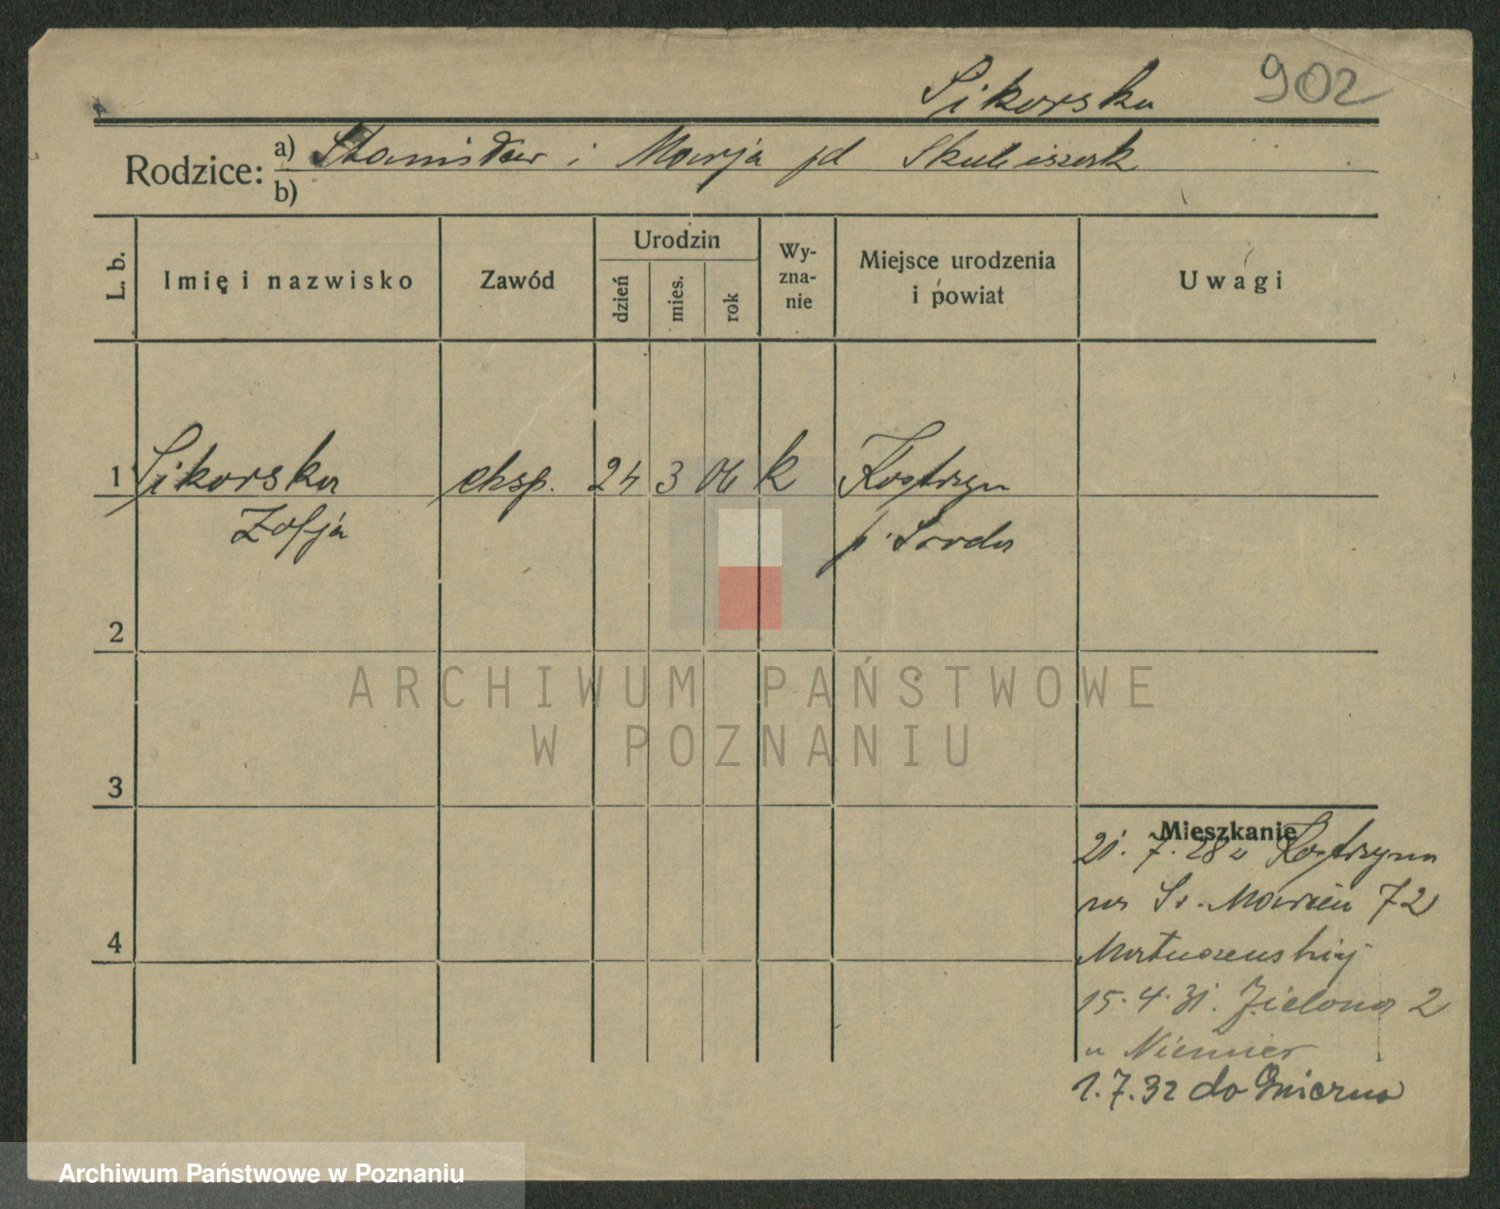 Sikorska 902
Rodzice: a) Stanisław i Marja zd Skubiszak
b)
L. b. Imię i nazwisko Zawód Urodzin dzień mies. rok Wy-zna-nie Miejsce urodzenia i powiat Uwagi
1 Sikorska eksp. 24 3 06 k Kostrzyn
Zofja p. Środa
2
ARCHIWUM PAŃSTWOWE
W POZNANIU
3
Mieszkanie
21. 7. 28 z Kostrzyna
na Św. Marcin 72
4
15. 4. 31. Zielona 2
u Niemier
1. 7. 32 do Gniezna
Archiwum Państwowe w Poznaniu